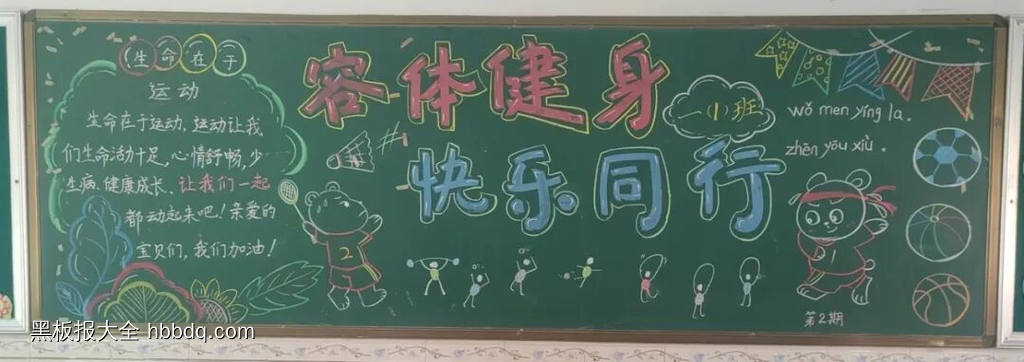 生命在于
运动
生命在于运动，运动让我
们生命活力十足，心情舒畅，少
生病，健康成长，让我们一起
都动起来吧！亲爱的
宝贝们，我们加油！
容体健身
快乐同行
一（1）班
wǒ men yíng la。
zhēn yōu xiù。
2
1
第2期
黑板报大全 hbbdq.com